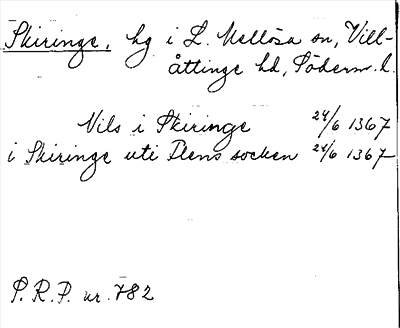 Skiringe, hg i L. Mellösa sn, Vill-
åttinge hd, Söderm. l.
Nils i Skiringe 24/6 1367
i Skiringe uti Flens socken 24/6 1367
P.R.P. nr. 782